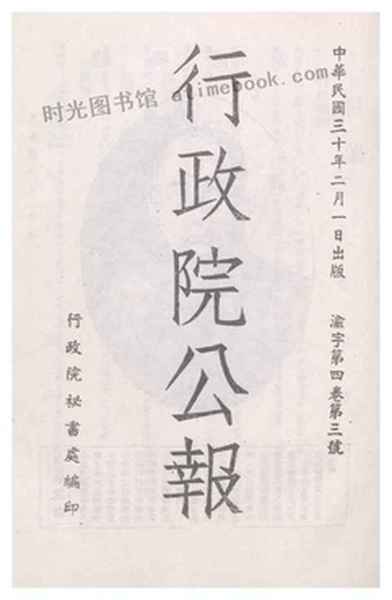 中華民國三十年二月一日出版　渝字第四卷第三號
行政院公報
行政院祕書處編印
时光图书馆 atimebook.com